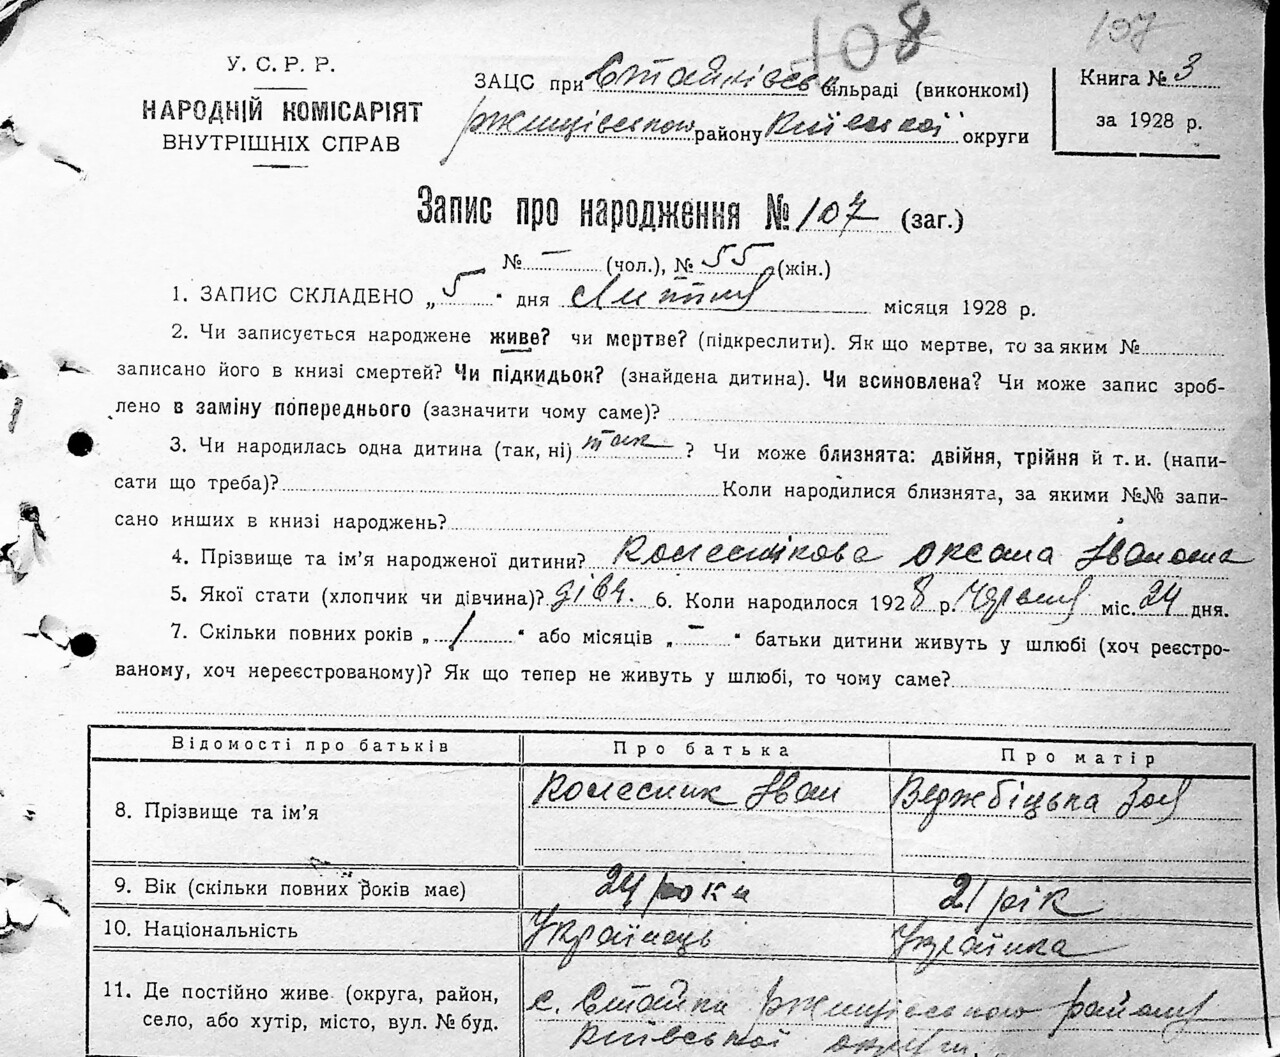 108
107
У. С. Р. Р.
НАРОДНІЙ КОМІСАРІЯТ
ВНУТРІШНІХ СПРАВ
ЗАЦС при Стайківськ сільраді (виконкомі)
Ржищівського району Київської округи
Книга № 3
за 1928 р.
Запис про народження № 107 (заг.)
№ — (чол.), № 55 (жін.)
1. ЗАПИС СКЛАДЕНО „5" дня Липня місяця 1928 р.
2. Чи записується народжене живе? чи мертве? (підкреслити). Як що мертве, то за яким №
записано його в книзі смертей? Чи підкидьок? (знайдена дитина). Чи всиновлена? Чи може запис зроб-
лено в заміну попереднього (зазначити чому саме)?
3. Чи народилась одна дитина (так, ні) так ? Чи може близнята: двійня, трійня й т. и. (напи-
сати що треба)? Коли народилися близнята, за якими №№ запи-
сано инших в книзі народжень?
4. Прізвище та ім'я народженої дитини? Колеснікова Оксана Івановна
5. Якої стати (хлопчик чи дівчина)? дівч. 6. Коли народилося 1928 р. Червня міс. 24 дня.
7. Скільки повних років „1" або місяців „—" батьки дитини живуть у шлюбі (хоч реєстро-
ваному, хоч нереєстрованому)? Як що тепер не живуть у шлюбі, то чому саме?
Відомості про батьків Про батька Про матір
8. Прізвище та ім'я Колесник Іван Вержбіцька Зоя
9. Вік (скільки повних років має) 24 роки 21 рік
10. Національність Українець Українка
11. Де постійно живе (округа, район, с. Стайки Ржищівського району
село, або хутір, місто, вул. № буд. Київської округи.